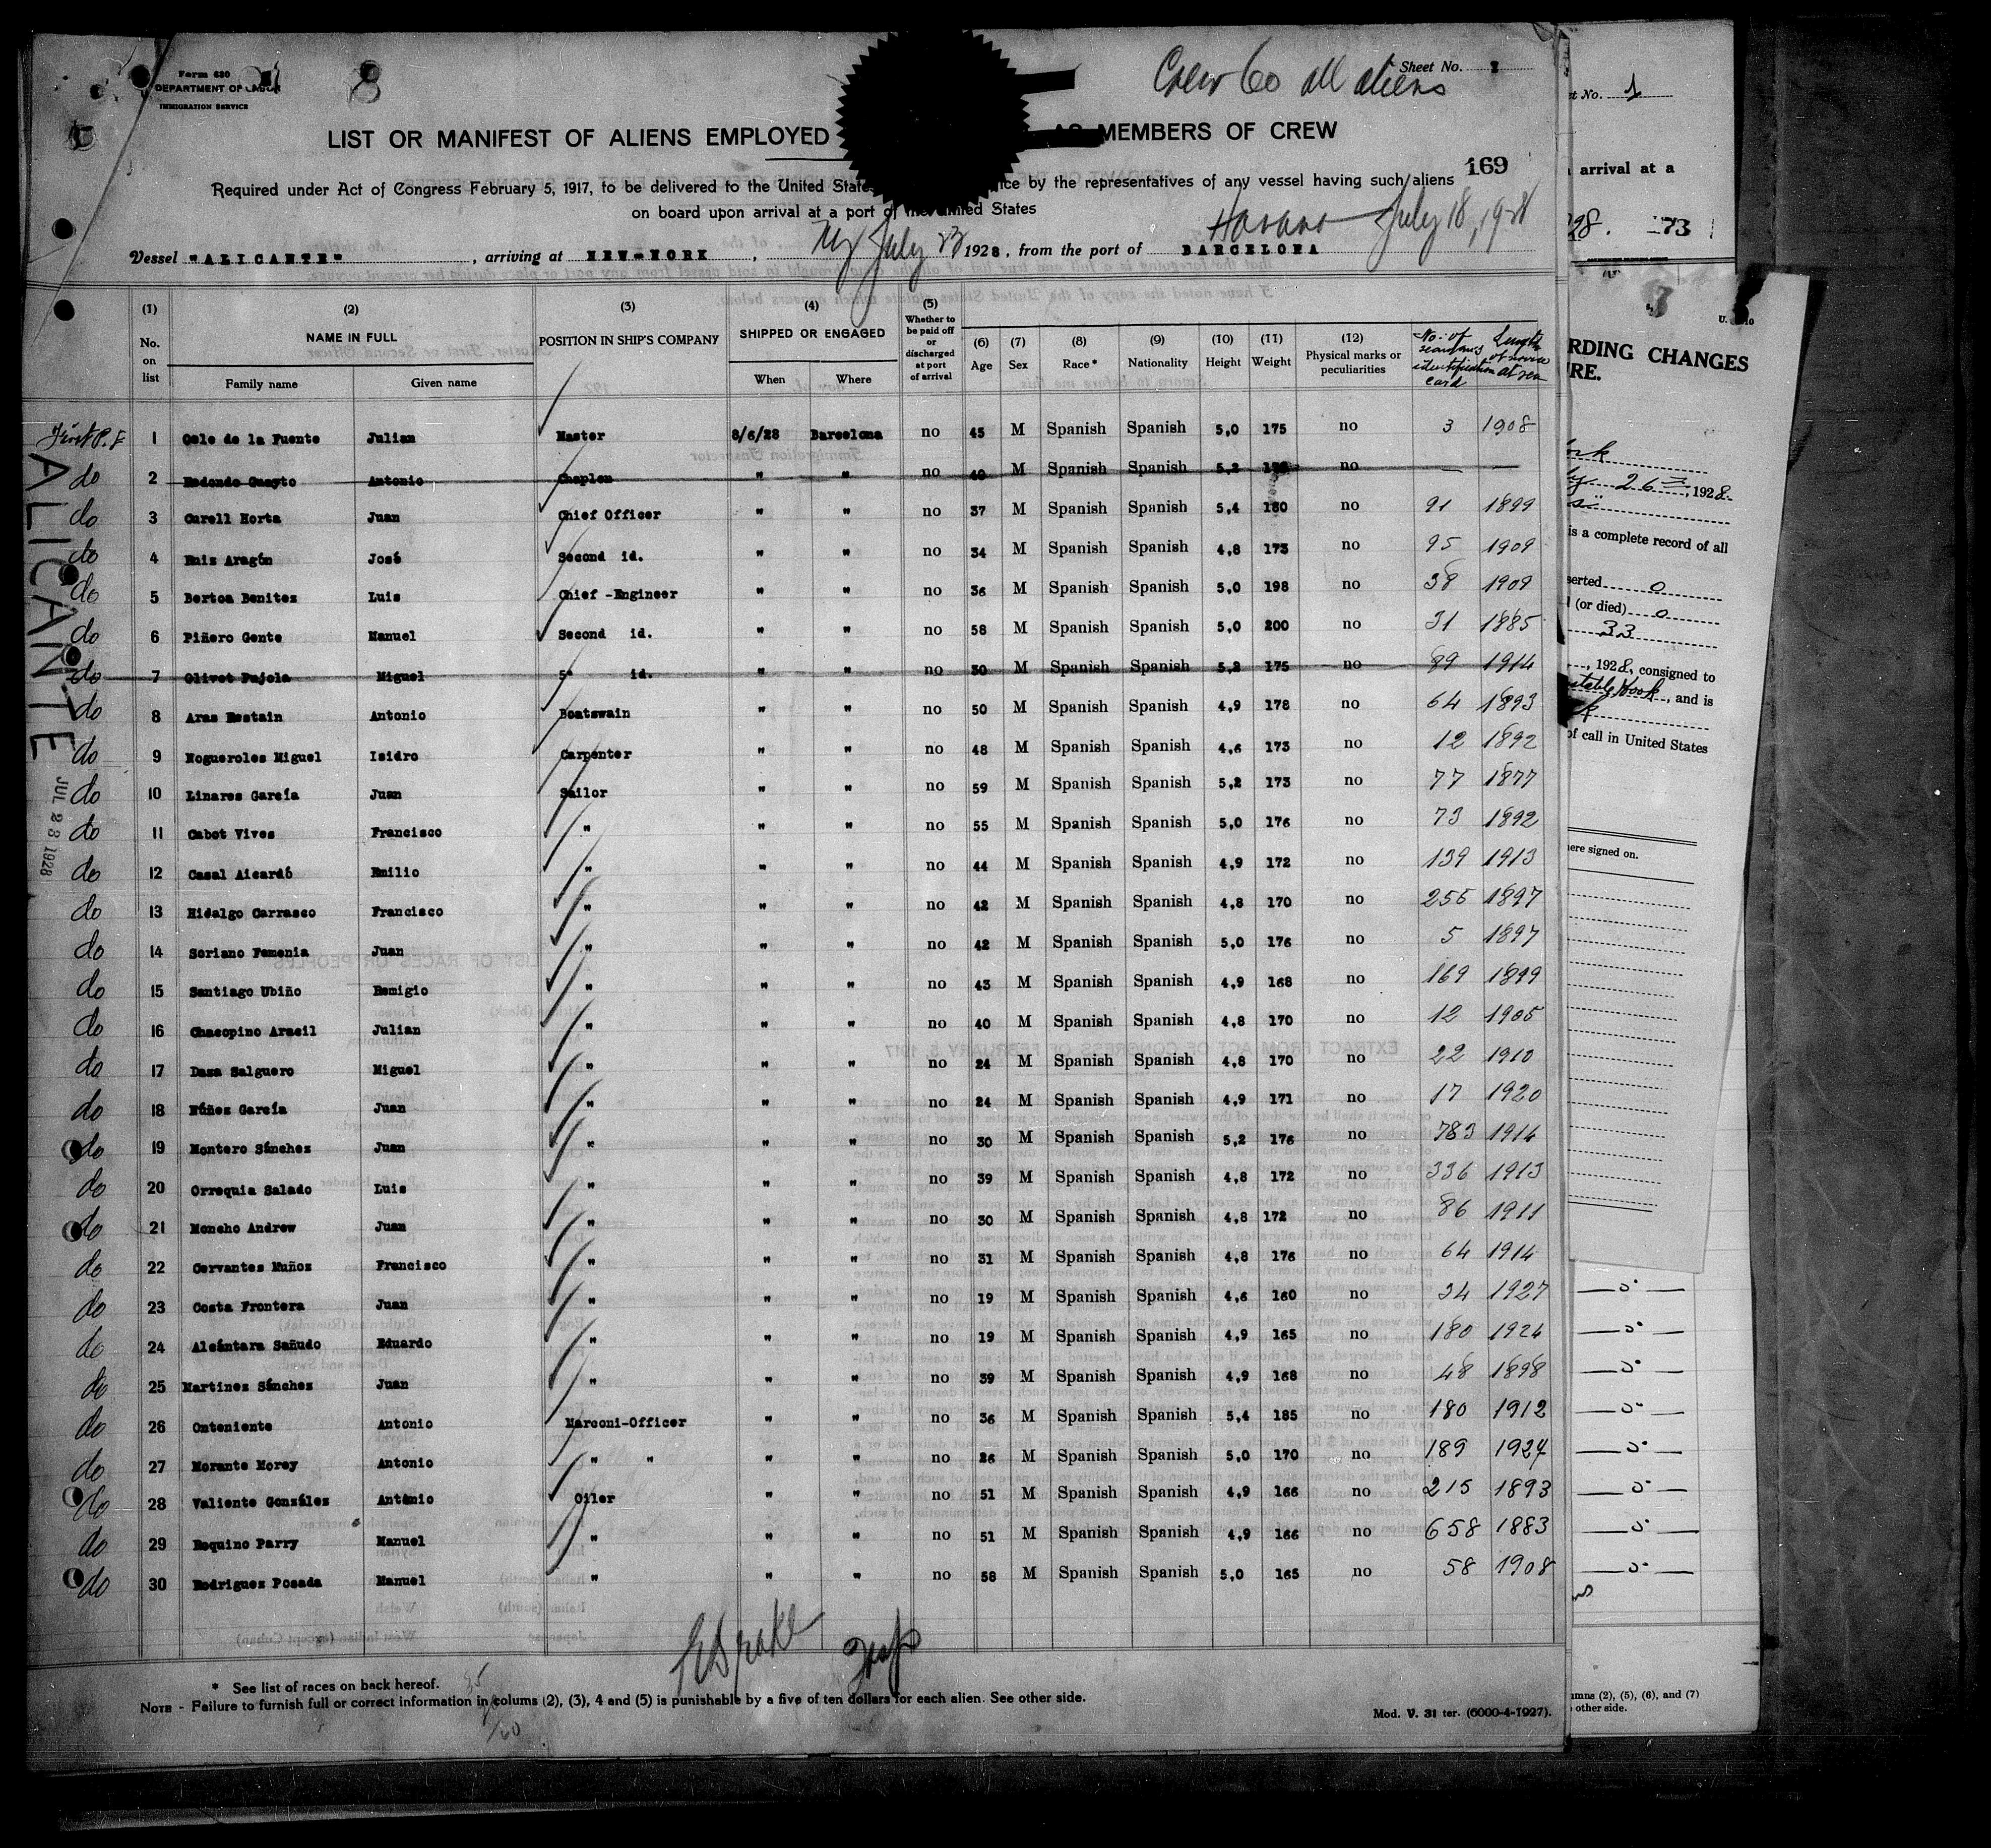 Form 680
DEPARTMENT OF LABOR
IMMIGRATION SERVICE
8
Crew 60 all aliens
Sheet No. 1
LIST OR MANIFEST OF ALIENS EMPLOYED AS MEMBERS OF CREW
169
Required under Act of Congress February 5, 1917, to be delivered to the United States by the representatives of any vessel having such aliens
on board upon arrival at a port of the United States
Havana July 18, 1928
Vessel "ALICANTE", arriving at NEW-YORK, July 1928, from the port of BARCELONA
(1) No. on list
(2) NAME IN FULL Family name Given name
(3) POSITION IN SHIP'S COMPANY
(4) SHIPPED OR ENGAGED When Where
(5) Whether to be paid off or discharged at port of arrival
(6) Age
(7) Sex
(8) Race*
(9) Nationality
(10) Height
(11) Weight
(12) Physical marks or peculiarities
No. of seaman's identification card
Length of service at sea
ALICANTE
JUL 23 1928
1 Cele de la Fuente Julian Master 8/6/28 Barcelona no 45 M Spanish Spanish 5,0 175 no 3 1908
do 2 Redondo Guayto Antonio Chaplen " " no 40 M Spanish Spanish 5,2 no — —
do 3 Curell Horta Juan Chief Officer " " no 37 M Spanish Spanish 5,4 180 no 91 1899
do 4 Ruiz Aragón José Second id. " " no 34 M Spanish Spanish 4,8 173 no 95 1909
do 5 Bertoa Benitez Luis Chief -Engineer " " no 36 M Spanish Spanish 5,0 198 no 38 1909
do 6 Piñero Gente Manuel Second id. " " no 58 M Spanish Spanish 5,0 200 no 31 1885
do 7 Olivet Pujola Miguel 5º id. " " no 30 M Spanish Spanish 5,2 175 no 89 1914
do 8 Aras Restain Antonio Boatswain " " no 50 M Spanish Spanish 4,9 178 no 64 1893
do 9 Nogueroles Miguel Isidro Carpenter " " no 48 M Spanish Spanish 4,6 173 no 12 1892
do 10 Linares García Juan Sailor " " no 59 M Spanish Spanish 5,2 173 no 77 1877
do 11 Cabot Vives Francisco " " " no 55 M Spanish Spanish 5,0 176 no 73 1892
do 12 Casal Aicardó Emilio " " " no 44 M Spanish Spanish 4,9 172 no 139 1913
do 13 Hidalgo Carrasco Francisco " " " no 42 M Spanish Spanish 4,8 170 no 255 1897
do 14 Soriano Femenia Juan " " " no 42 M Spanish Spanish 5,0 176 no 5 1897
do 15 Santiago Ubiño Remigio " " " no 43 M Spanish Spanish 4,9 168 no 169 1899
do 16 Chacopino Aracil Julian " " " no 40 M Spanish Spanish 4,8 170 no 12 1905
do 17 Dasa Salguero Miguel " " " no 24 M Spanish Spanish 4,8 170 no 22 1910
do 18 Núñez García Juan " " " no 24 M Spanish Spanish 4,9 171 no 17 1920
do 19 Montero Sánchez Juan " " " no 30 M Spanish Spanish 5,2 176 no 783 1914
do 20 Orrequia Salado Luis " " " no 39 M Spanish Spanish 4,8 172 no 336 1913
do 21 Moncho Andrew Juan " " " no 30 M Spanish Spanish 4,8 172 no 86 1911
do 22 Cervantes Muños Francisco " " " no 31 M Spanish Spanish 4,8 176 no 64 1914
do 23 Costa Frontera Juan " " " no 19 M Spanish Spanish 4,6 160 no 34 1927
do 24 Alcántara Sañudo Eduardo " " " no 19 M Spanish Spanish 4,9 165 no 180 1924
do 25 Martinez Sánchez Juan " " " no 39 M Spanish Spanish 4,9 168 no 48 1898
do 26 Onteniente Antonio Marconi-Officer " " no 36 M Spanish Spanish 5,4 185 no 180 1912
do 27 Morante Morey Antonio " " " " no 26 M Spanish Spanish 5,0 170 no 189 1924
do 28 Valiente Gonzáles António Oiler " " no 51 M Spanish Spanish 4,9 166 no 215 1893
do 29 Requino Parry Manuel " " " no 51 M Spanish Spanish 4,9 166 no 658 1883
do 30 Rodriguez Posada Manuel " " " no 58 M Spanish Spanish 5,0 165 no 58 1908
* See list of races on back hereof.
NOTE - Failure to furnish full or correct information in colums (2), (3), 4 and (5) is punishable by a five of ten dollars for each alien. See other side.
Mod. V. 31 ter. (6000-4-1927).
No. 1
arrival at a
28. 73
RDING CHANGES
RE.
26, 1928
is a complete record of all
serted 0
(or died) 0
33
, 1928, consigned to
Hook, and is
of call in United States
ere signed on.
umns (2), (5), (6), and (7)
other side.